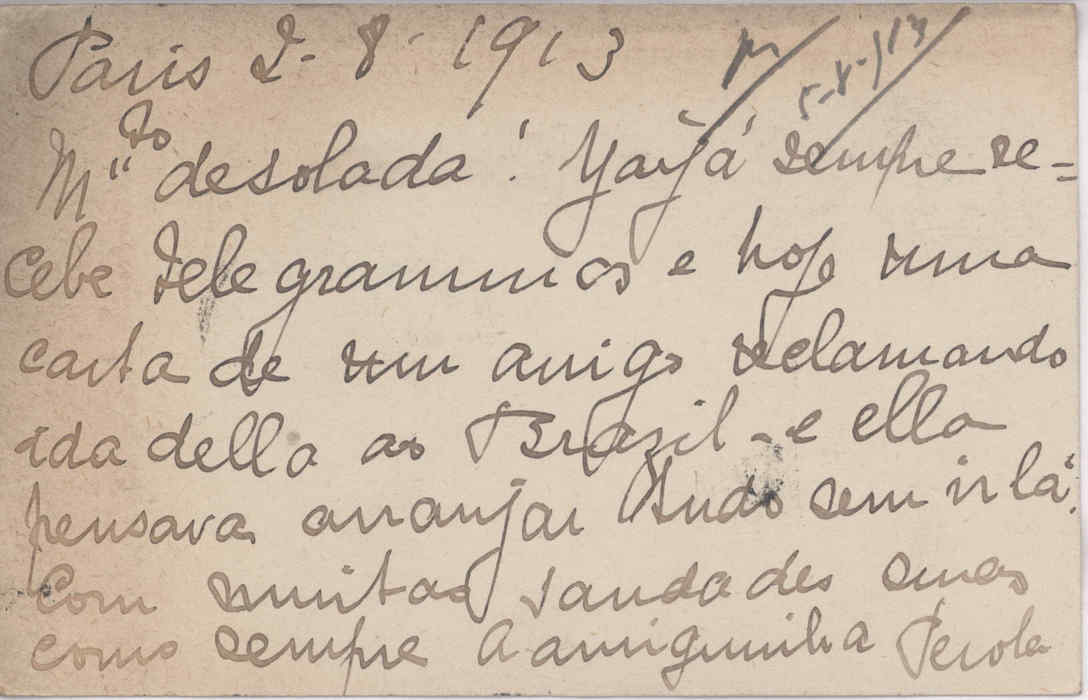 Paris 2-8-1913
5-8-913
M.to desolada! Yayá sempre re-
cebe telegrammas e hoje uma
carta de um amigo reclamando
ida della ao Brazil - e ella
pensava arranjar tudo sem ir lá!
Com muitas saudades suas
como sempre a amiguinha Perola